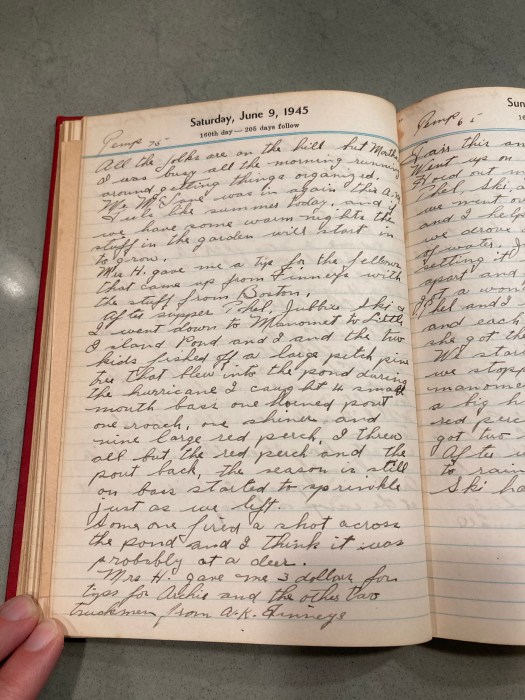 Saturday, June 9, 1945
160th day—205 days follow
Temp 75°
All the folks are on the hill but Martha
I was busy all the morning running
around getting things organized.
Mr. was in again this a.m.
Feels like summer today, and if
we have some warm nights the
stuff in the garden will start in
to grow.
Mrs H. gave me a tip for the fellows
that came up from Finneys with
the stuff from Boston.
After supper Thel, Jubbie Ski &
I went down to Manomet to Little
Island Pond and I and the two
kids fished off a large pitch pine
tree that blew into the pond during
the hurricane I caught 4 small
mouth bass one horned pout
one roach, one shiner and
nine large red perch, I threw
all but the red perch and the
pout back, the season is still
on bass started to sprinkle
just as we left.
Some one fired a shot across
the pond and I think it was
probably at a deer.
Mrs H. gave me 3 dollars for
tips for Archie and the other two
truckmen from A.K. Finneys
Sun
Temp 65
Fair this
Went up on
Hood out
Thel, Ski, a
we went ou
and I help
we drove
of water. I
getting it
apart and
a won
Thel and I
and each
she got th
We star
we stopp
manome
a big h
red perc
got two
After
to rain
Ski ha